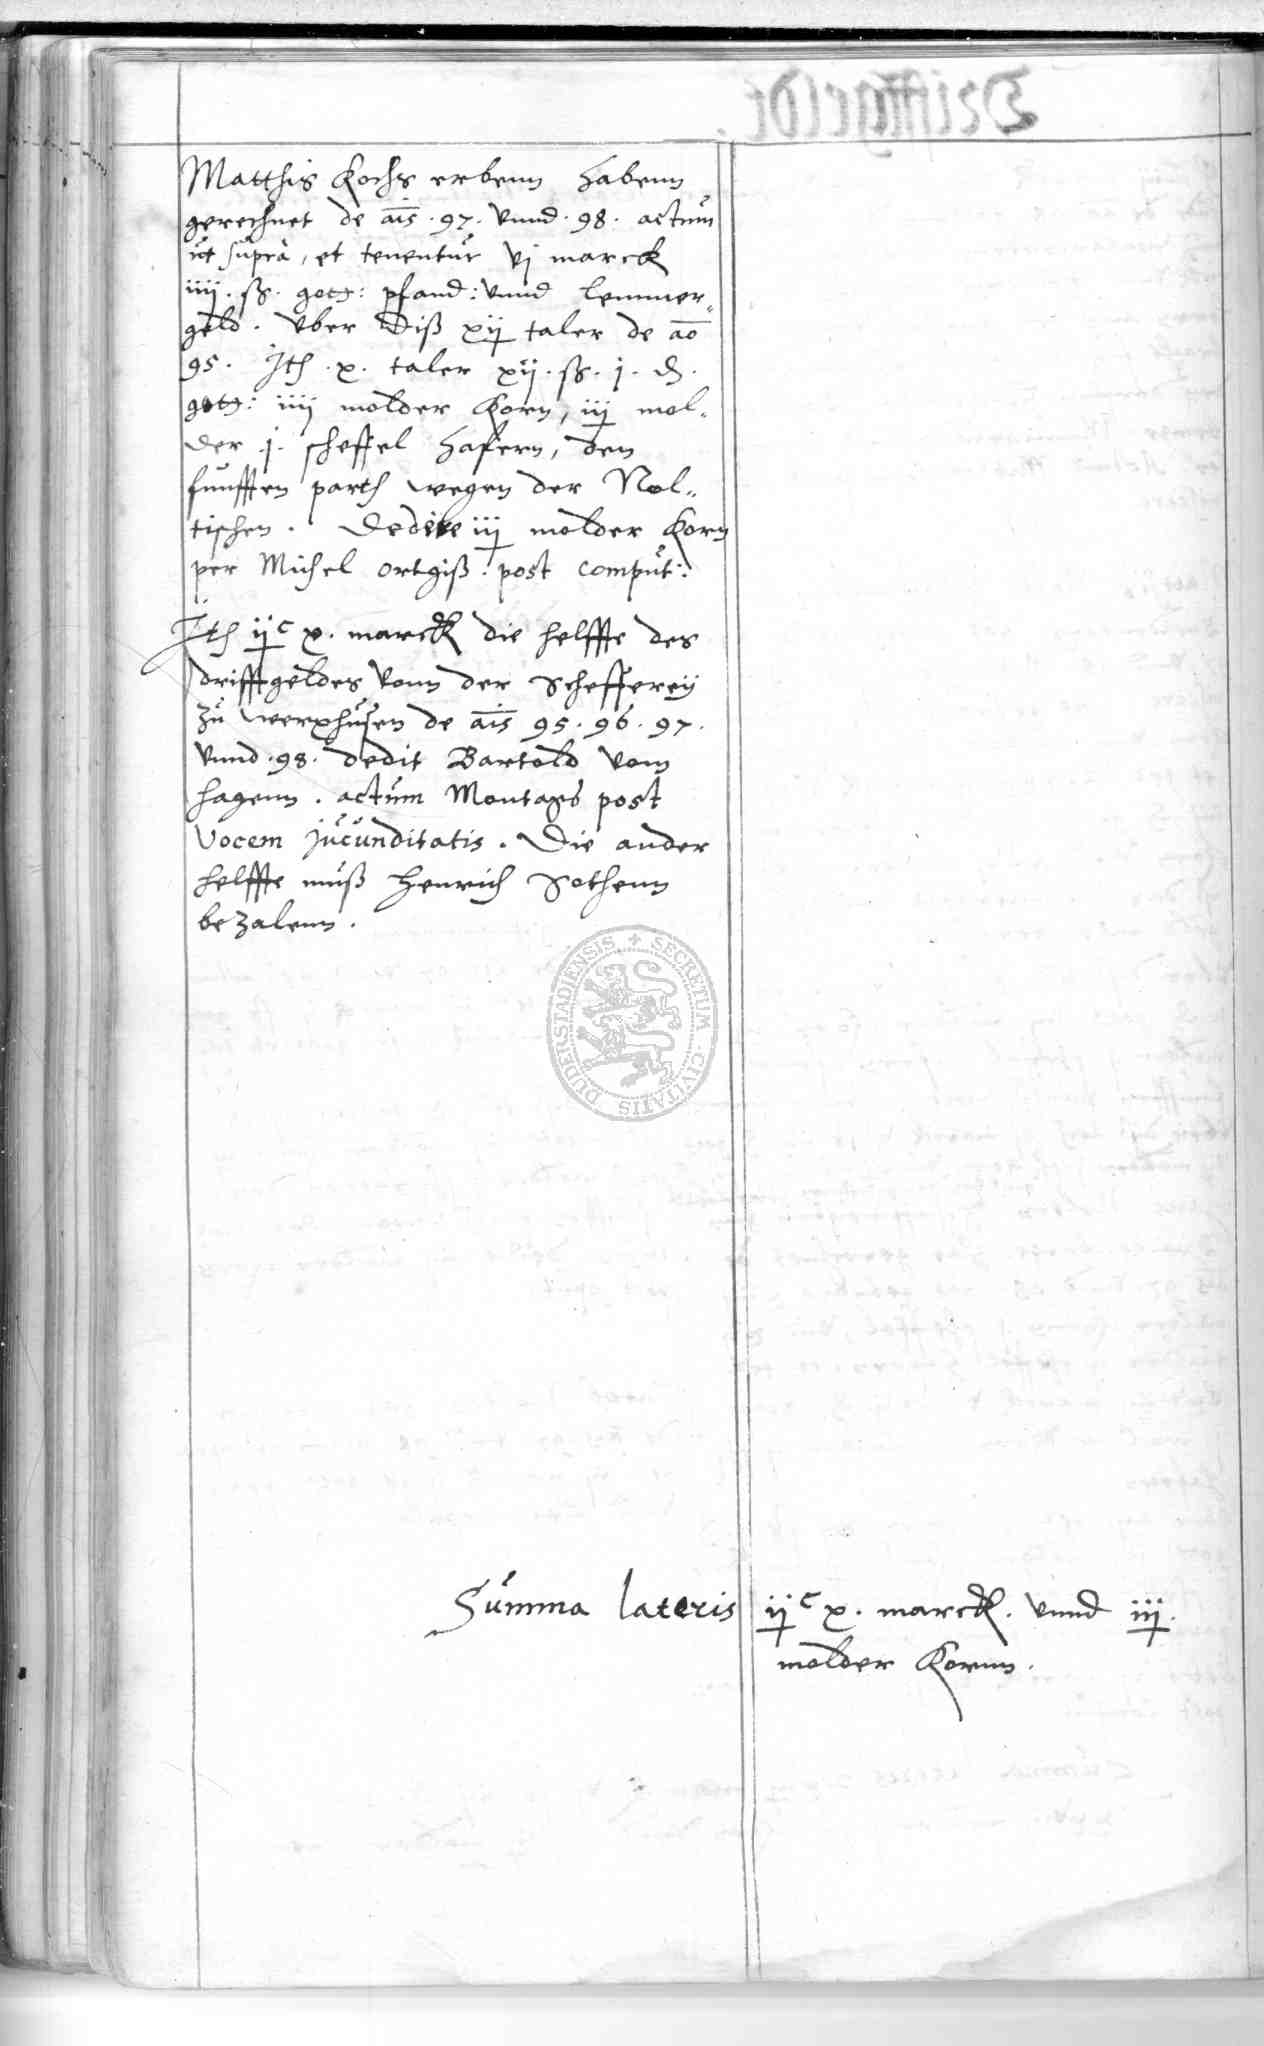 Matthis Kochs erbenn habenn
gerechnet de aīs . 97 . vnnd . 98 . actum
ut supra, et tenentur vj marck
iiij . ß . gott: pfand: vnnd lemmer„
geld . vber diß xij taler de ao
95 . Ith . x . taler xij . ß . j . ₰ .
gott: iiij molder Korn, iij mol„
der . j . scheffel hafern, den
funfften parth wegen der Nol„
tischen . Dedit iij molder Korn
per Michel ortgiß . post comput:
Ith ijᶜ x . marck die helffte des
drifftgeldes vonn der Schefferey
zu werxhusen de aīs 95 . 96 . 97 .
vnnd . 98 . dedit Bartold vom
hagenn . actum Montags post
Vocem jucunditatis . Die ander
helffte muß Henrich Sothenn
bezalenn .
DUDERSTADIENSIS + SECRETUM · CIVITATIS
Summa lateris ijᶜ x . marck . vnnd iij .
molder Kornn .